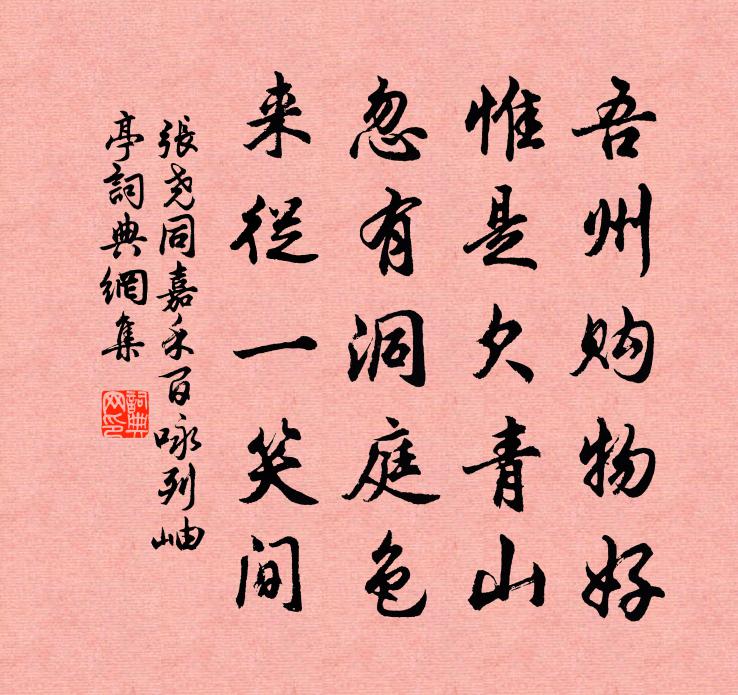 吾州购物好
惟是欠青山
忽有洞庭色
来從一笑间
張尧同嘉禾百咏列岫
亭詞典網集
詞典网印